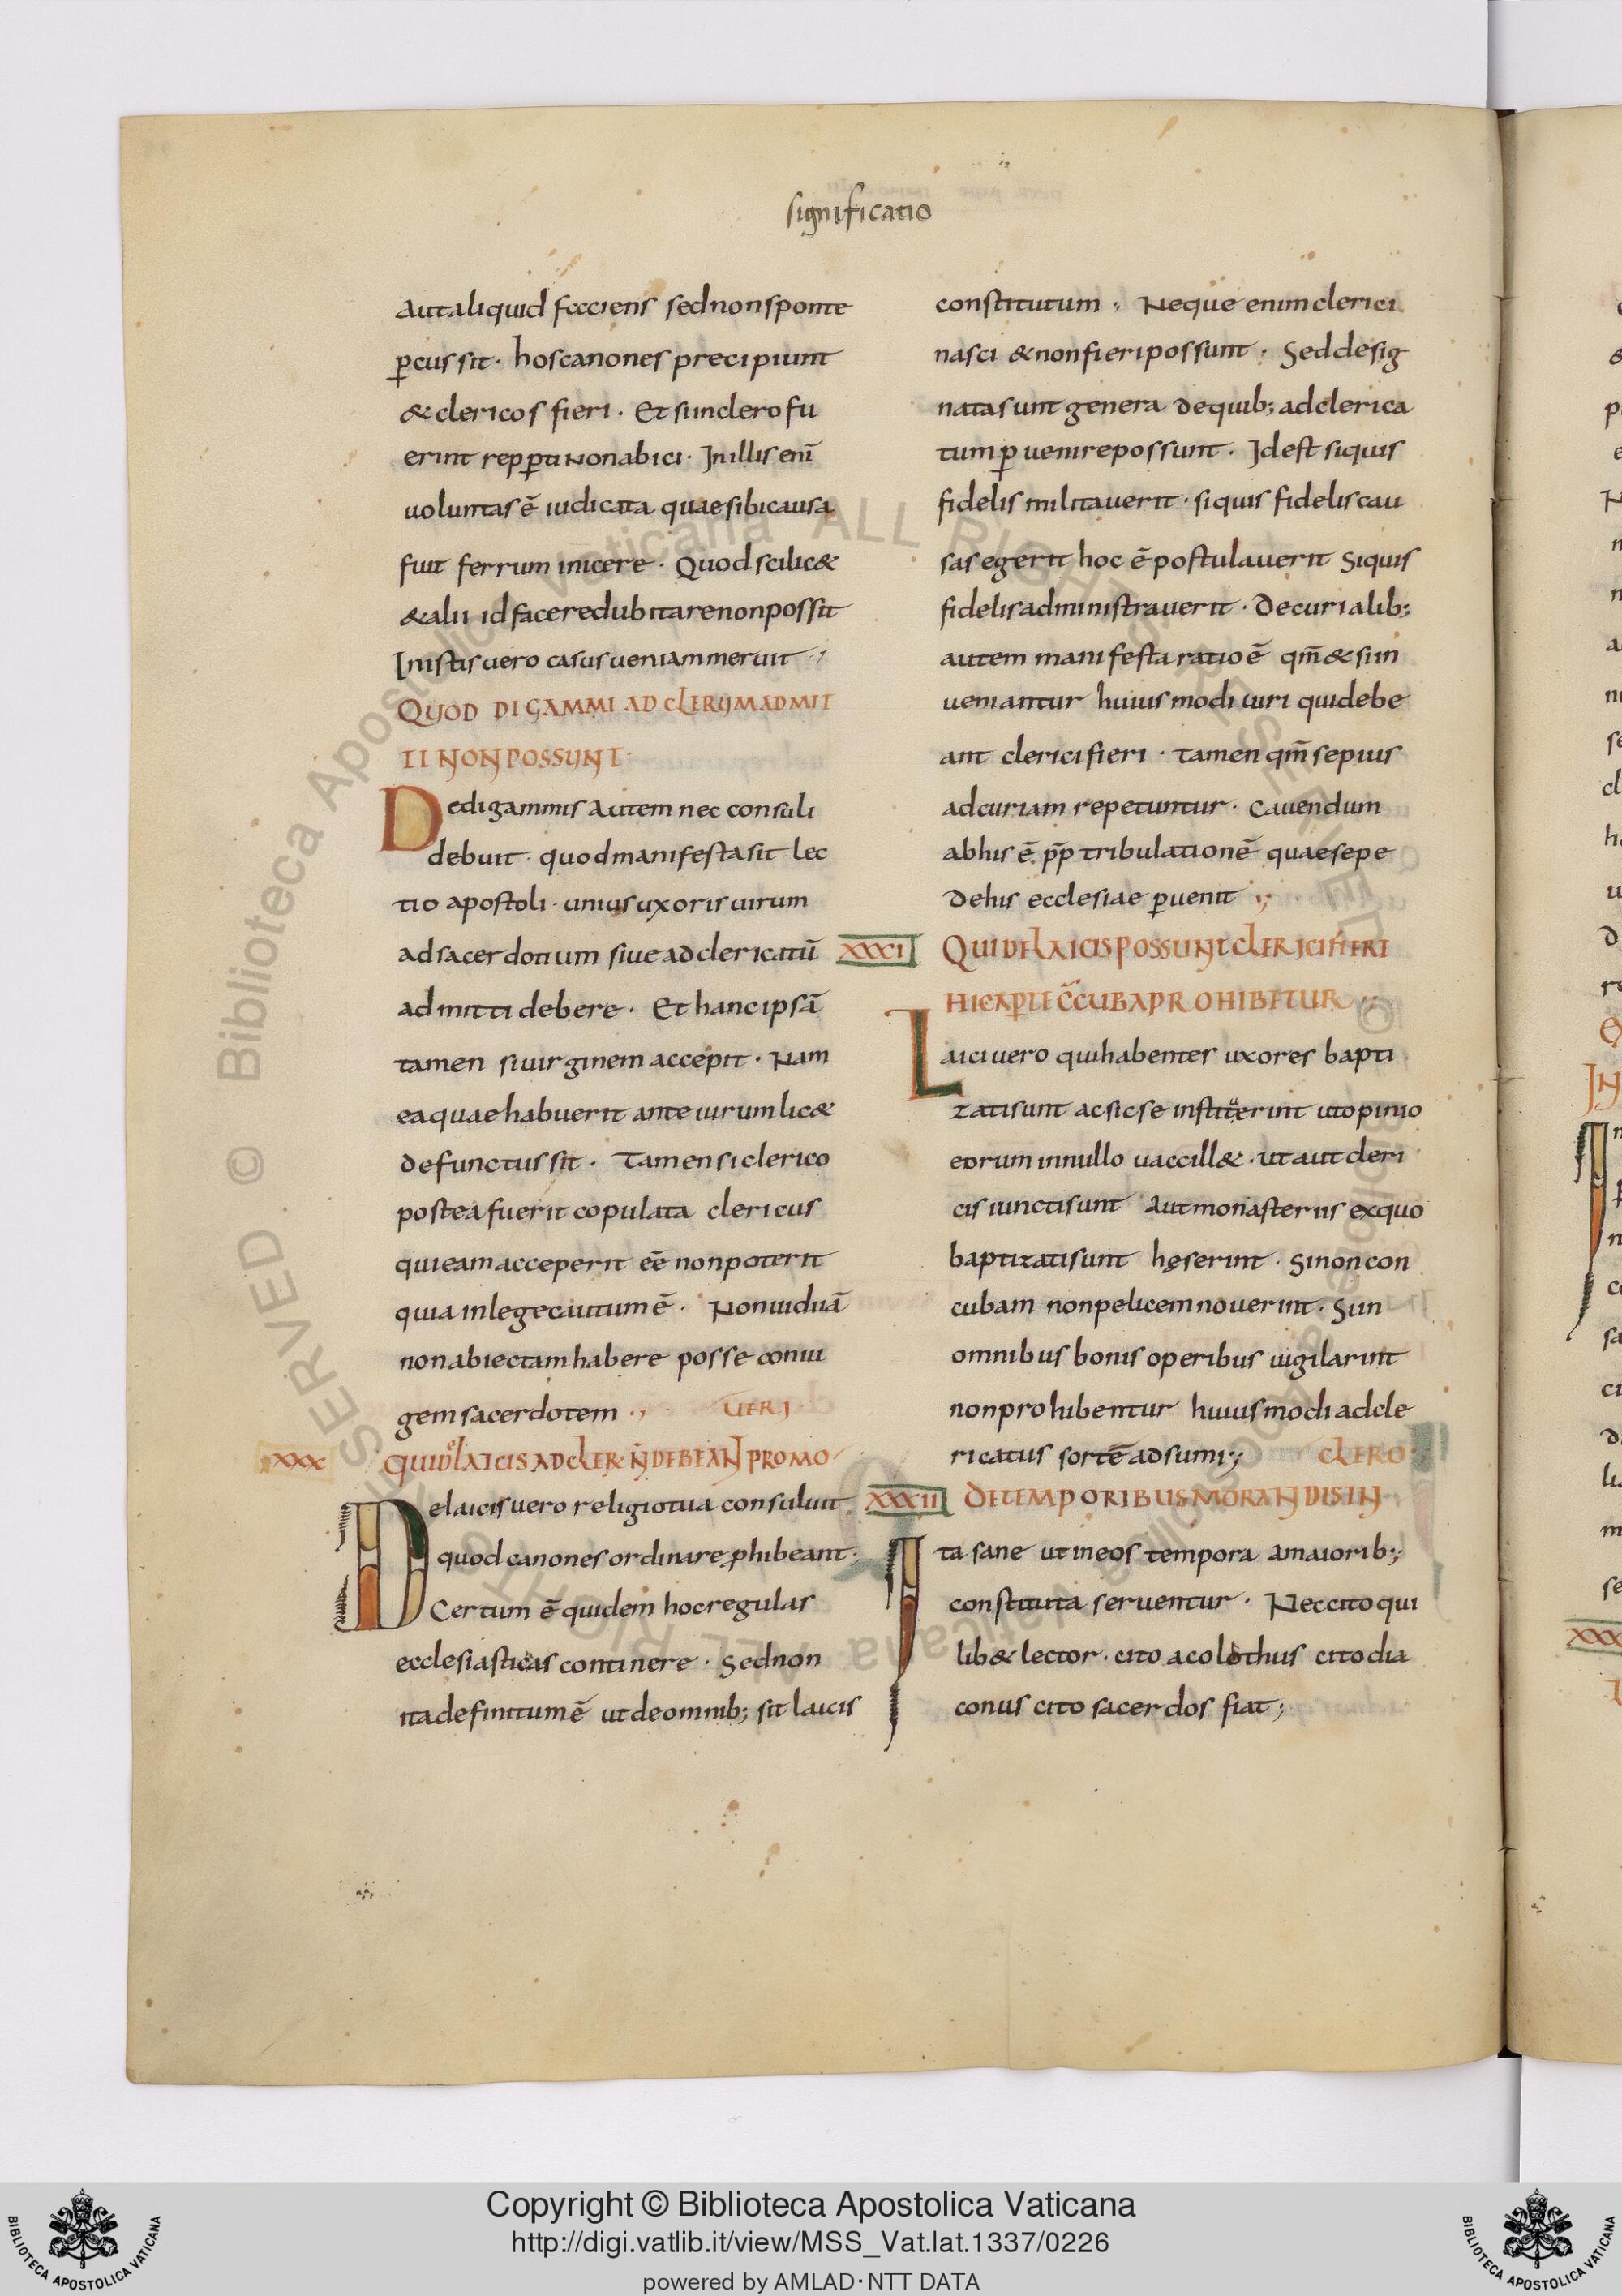 significatio
Aut aliquid facciens sed non sponte
ꝑcussit · hos canones precipiunt
& clericos fieri · Et si in clero fu
erint repꝑti non abici · In illis enī
uoluntas ē iudicata quae sibi causa
fuit ferrum inicere · Quod scilic&
& alii id facere dubitare non possit
In istis uero casus ueniam meruit ·,
QUOD DIGAMMI AD CLERUM ADMIT
TI NON POSSUNT ·
De digammis autem nec consuli
debuit · quod manifesta sit lec
tio apostoli · unius uxoris uirum
ad sacerdotium siue ad clericatū
admitti debere · Et hanc ipsā
tamen si uirginem accepit · Nam
ea quae habuerit ante uirum lic&
defunctus sit · Tamen si clerico
postea fuerit copulata clericus
qui eam acceperit eē non poterit
quia in lege cautum ē · Non uiduā
non abiectam habere posse coniu
gem sacerdotem ·, UERI
XXX QUI DE LAICIS AD CLER· N̄ DEBEANT PROMO
De laicis uero religio tua consuluit
quod canones ordinare ꝓhibeant ·
Certum ē quidem hoc regulas
ecclesiasticas continere · Sed non
ita definitum ē ut de omnib; sit laicis
constitutum · Neque enim clerici
nasci & non fieri possunt · Sed desig
nata sunt genera de quib; ad clerica
tum ꝑuenire possunt · Id est si quis
fidelis militauerit · si quis fidelis cau
sas egerit hoc ē postulauerit Si quis
fidelis administrauerit · De curialib;
autem manifesta ratio ē qm̄ & si in
ueniantur huiusmodi uiri qui debe
ant clerici fieri · tamen qm̄ sepius
ad curiam repetuntur · Cauendum
ab his ē pp̄ tribulationē quae sepe
de his ecclesiae ꝑuenit ·;
XXXCI QUI DE LAICIS POSSUNT CLERICI FIERI
HIC APTE CCUBA PROHIBETUR ·;
Laici uero qui habentes uxores bapti
zati sunt ac sic se instituerint ut opinio
eorum in nullo uaccill& · ut aut cleri
cis iuncti sunt Aut monasteriis ex quo
baptizati sunt hęserint · Si non con
cubam non pelicem nouerint · Si in
omnibus bonis operibus uigilarint
non prohibentur huiusmodi ad cle
ricatus sortē adsumi ·; CLERO ·
XXXII DE TEMPORIBUS MORANDIS IN
Ita sane ut in eos tempora a maiorib;
constituta seruentur · Nec cito qui
lib& lector · cito acolothus cito dia
conus cito sacerdos fiat ;
Copyright © Biblioteca Apostolica Vaticana
http://digi.vatlib.it/view/MSS_Vat.lat.1337/0226
powered by AMLAD·NTT DATA